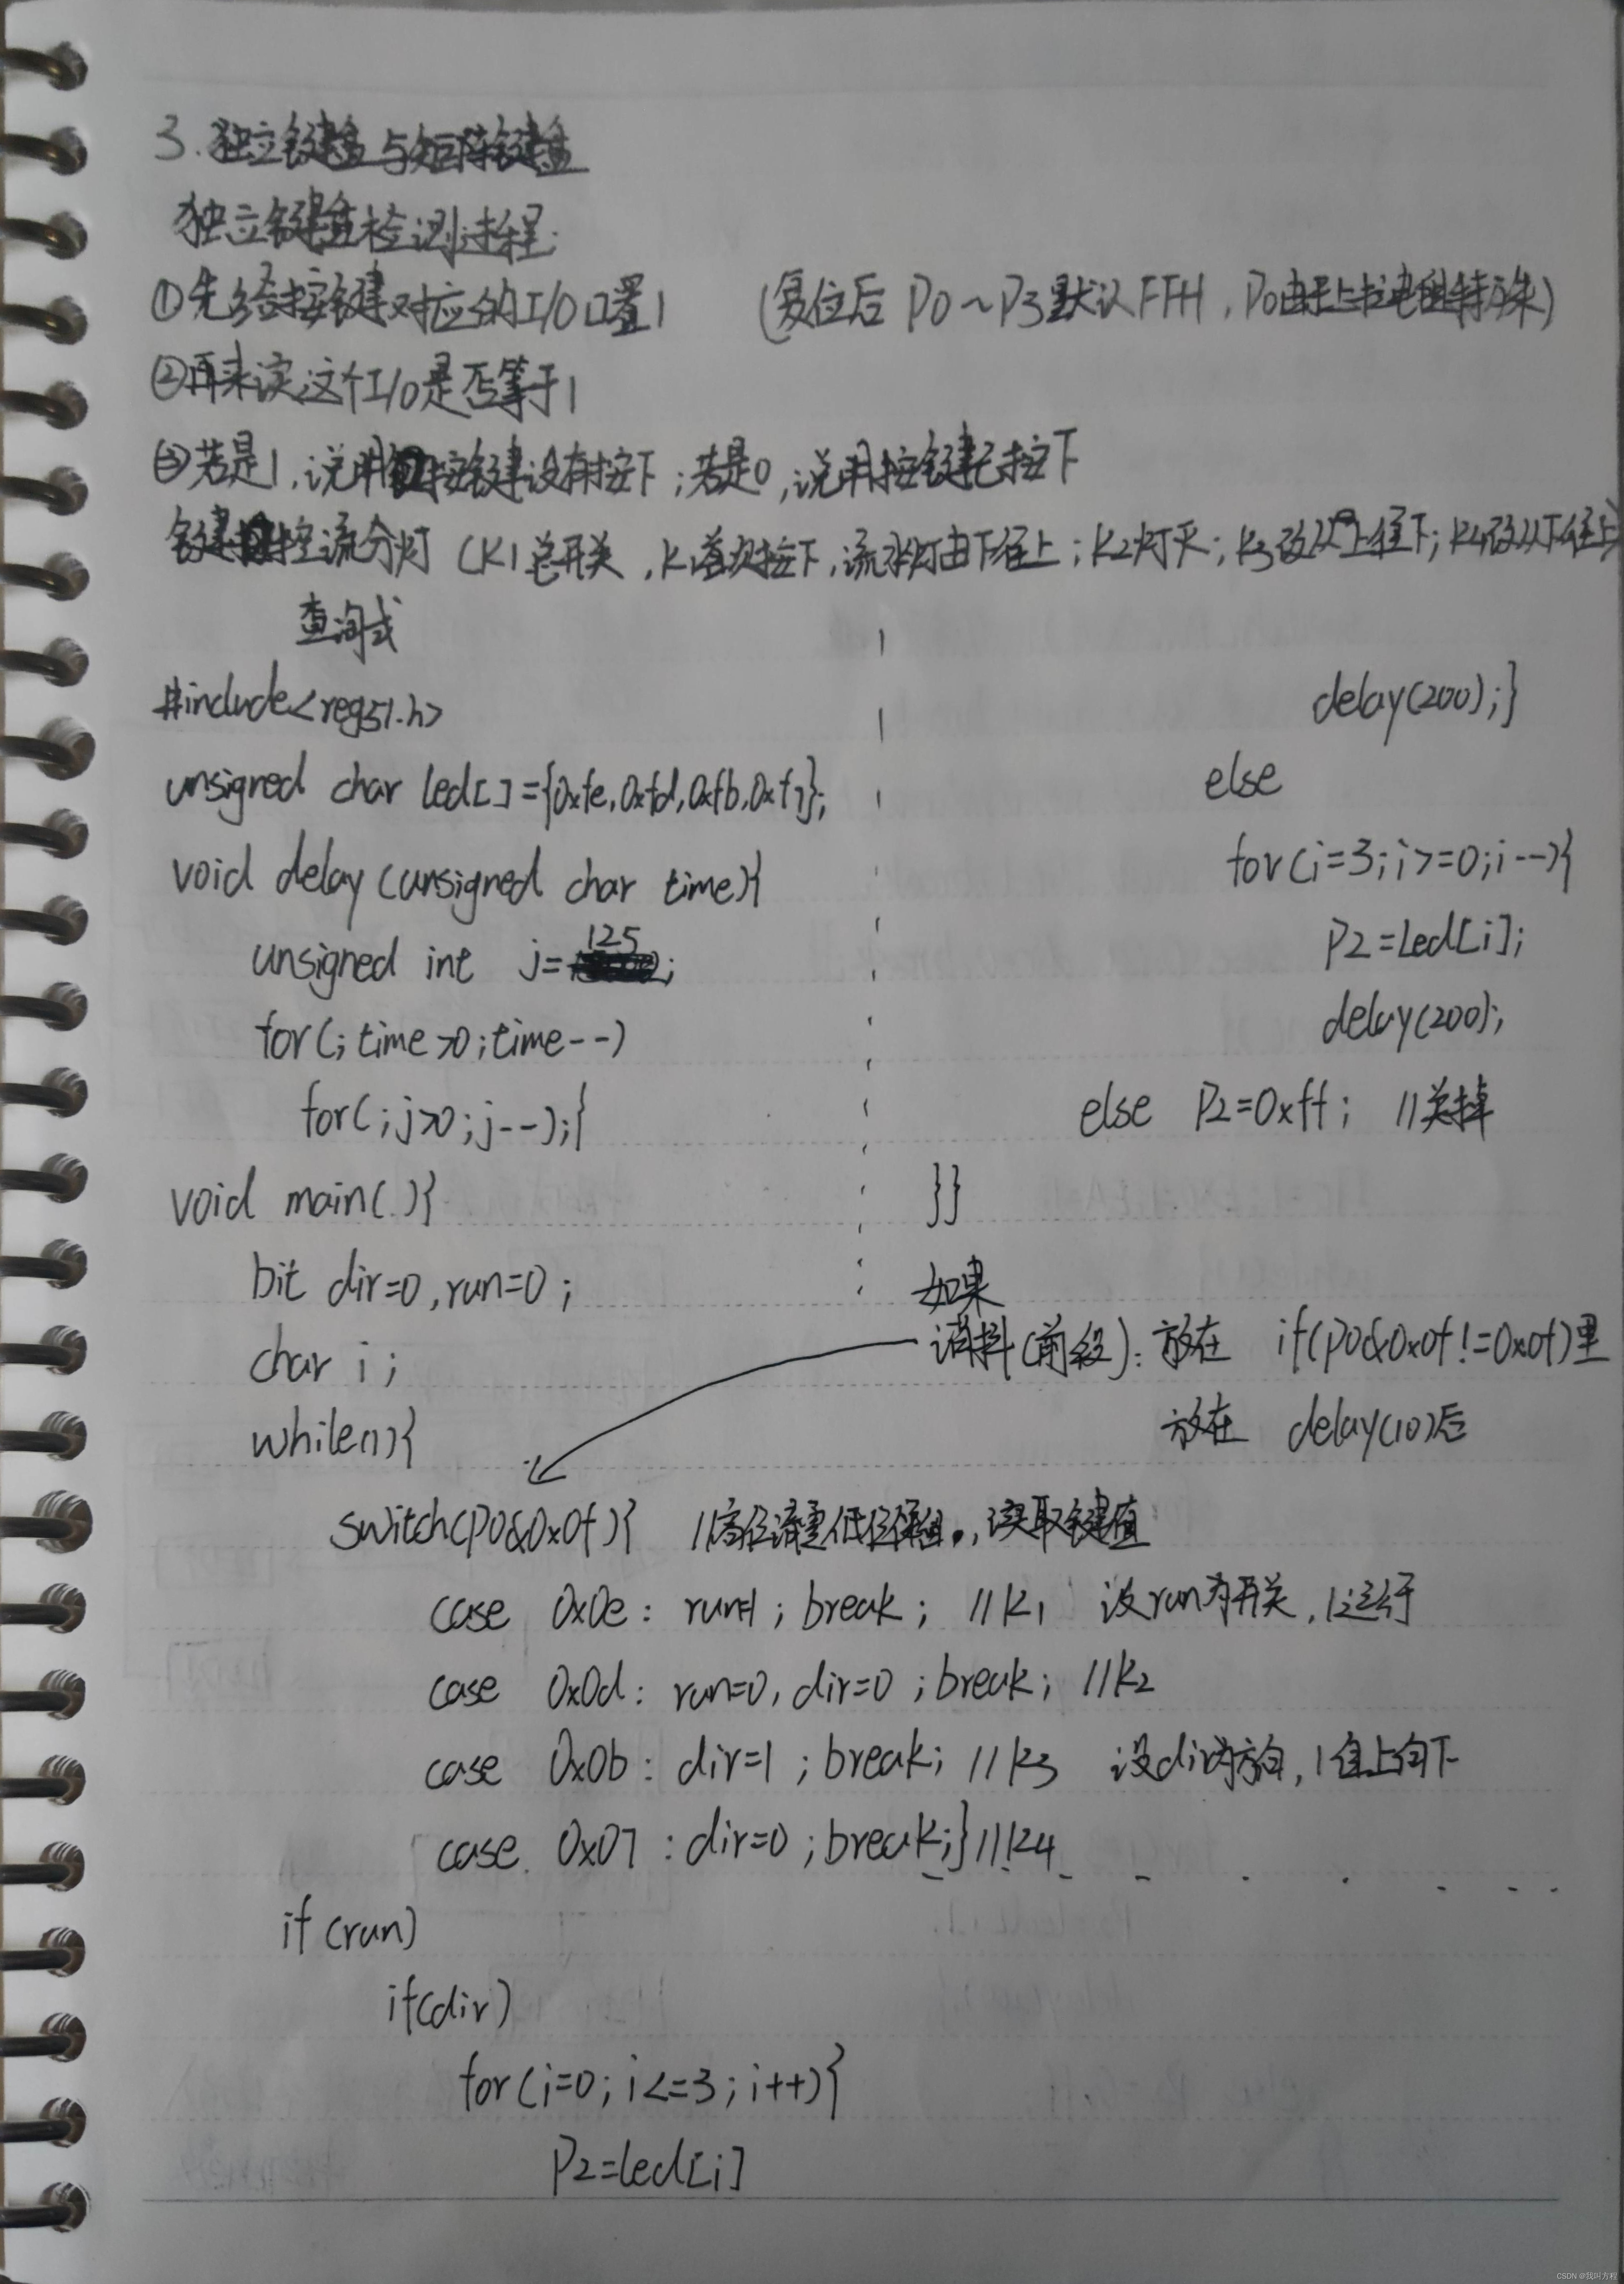 3.独立键盘与矩阵键盘
独立键盘检测过程:
①先给按键对应的I/O口置1 (复位后 P0~P3默认FFH,P0由于上拉电阻特殊)
②再来读这个I/O是否等于1
③若是1,说明按键没有按下;若是0,说明按键已按下
键控流水灯 (K1总开关,K1首次按下,流水灯由下往上;K2灯灭;K3改从上往下;K4改从下往上)
查询式
#include<reg51.h>
unsigned char led[]={0xfe,0xfd,0xfb,0xf7};
void delay(unsigned char time){
unsigned int j=125;
for(;time>0;time--)
for(;j>0;j--);}
void main(){
bit dir=0,run=0;
char i;
while(1){
switch(P0&0x0f){ //高位清零低位保留,读取键值
case 0x0e: run=1; break; //K1 设run为开关,1运行
case 0x0d: run=0, dir=0; break; //K2
case 0x0b: dir=1; break; //K3 设dir为方向,1自上向下
case 0x07: dir=0; break;}//K4
if(run)
if(dir)
for(i=0;i<=3;i++){
P2=led[i]
delay(200);}
else
for(i=3;i>=0;i--){
P2=led[i];
delay(200);
else P2=0xff; //关掉
}}
如果
消抖(前级): 放在 if(P0&0x0f!=0x0f)里
放在 delay(10)后
CSDN @我叫方程